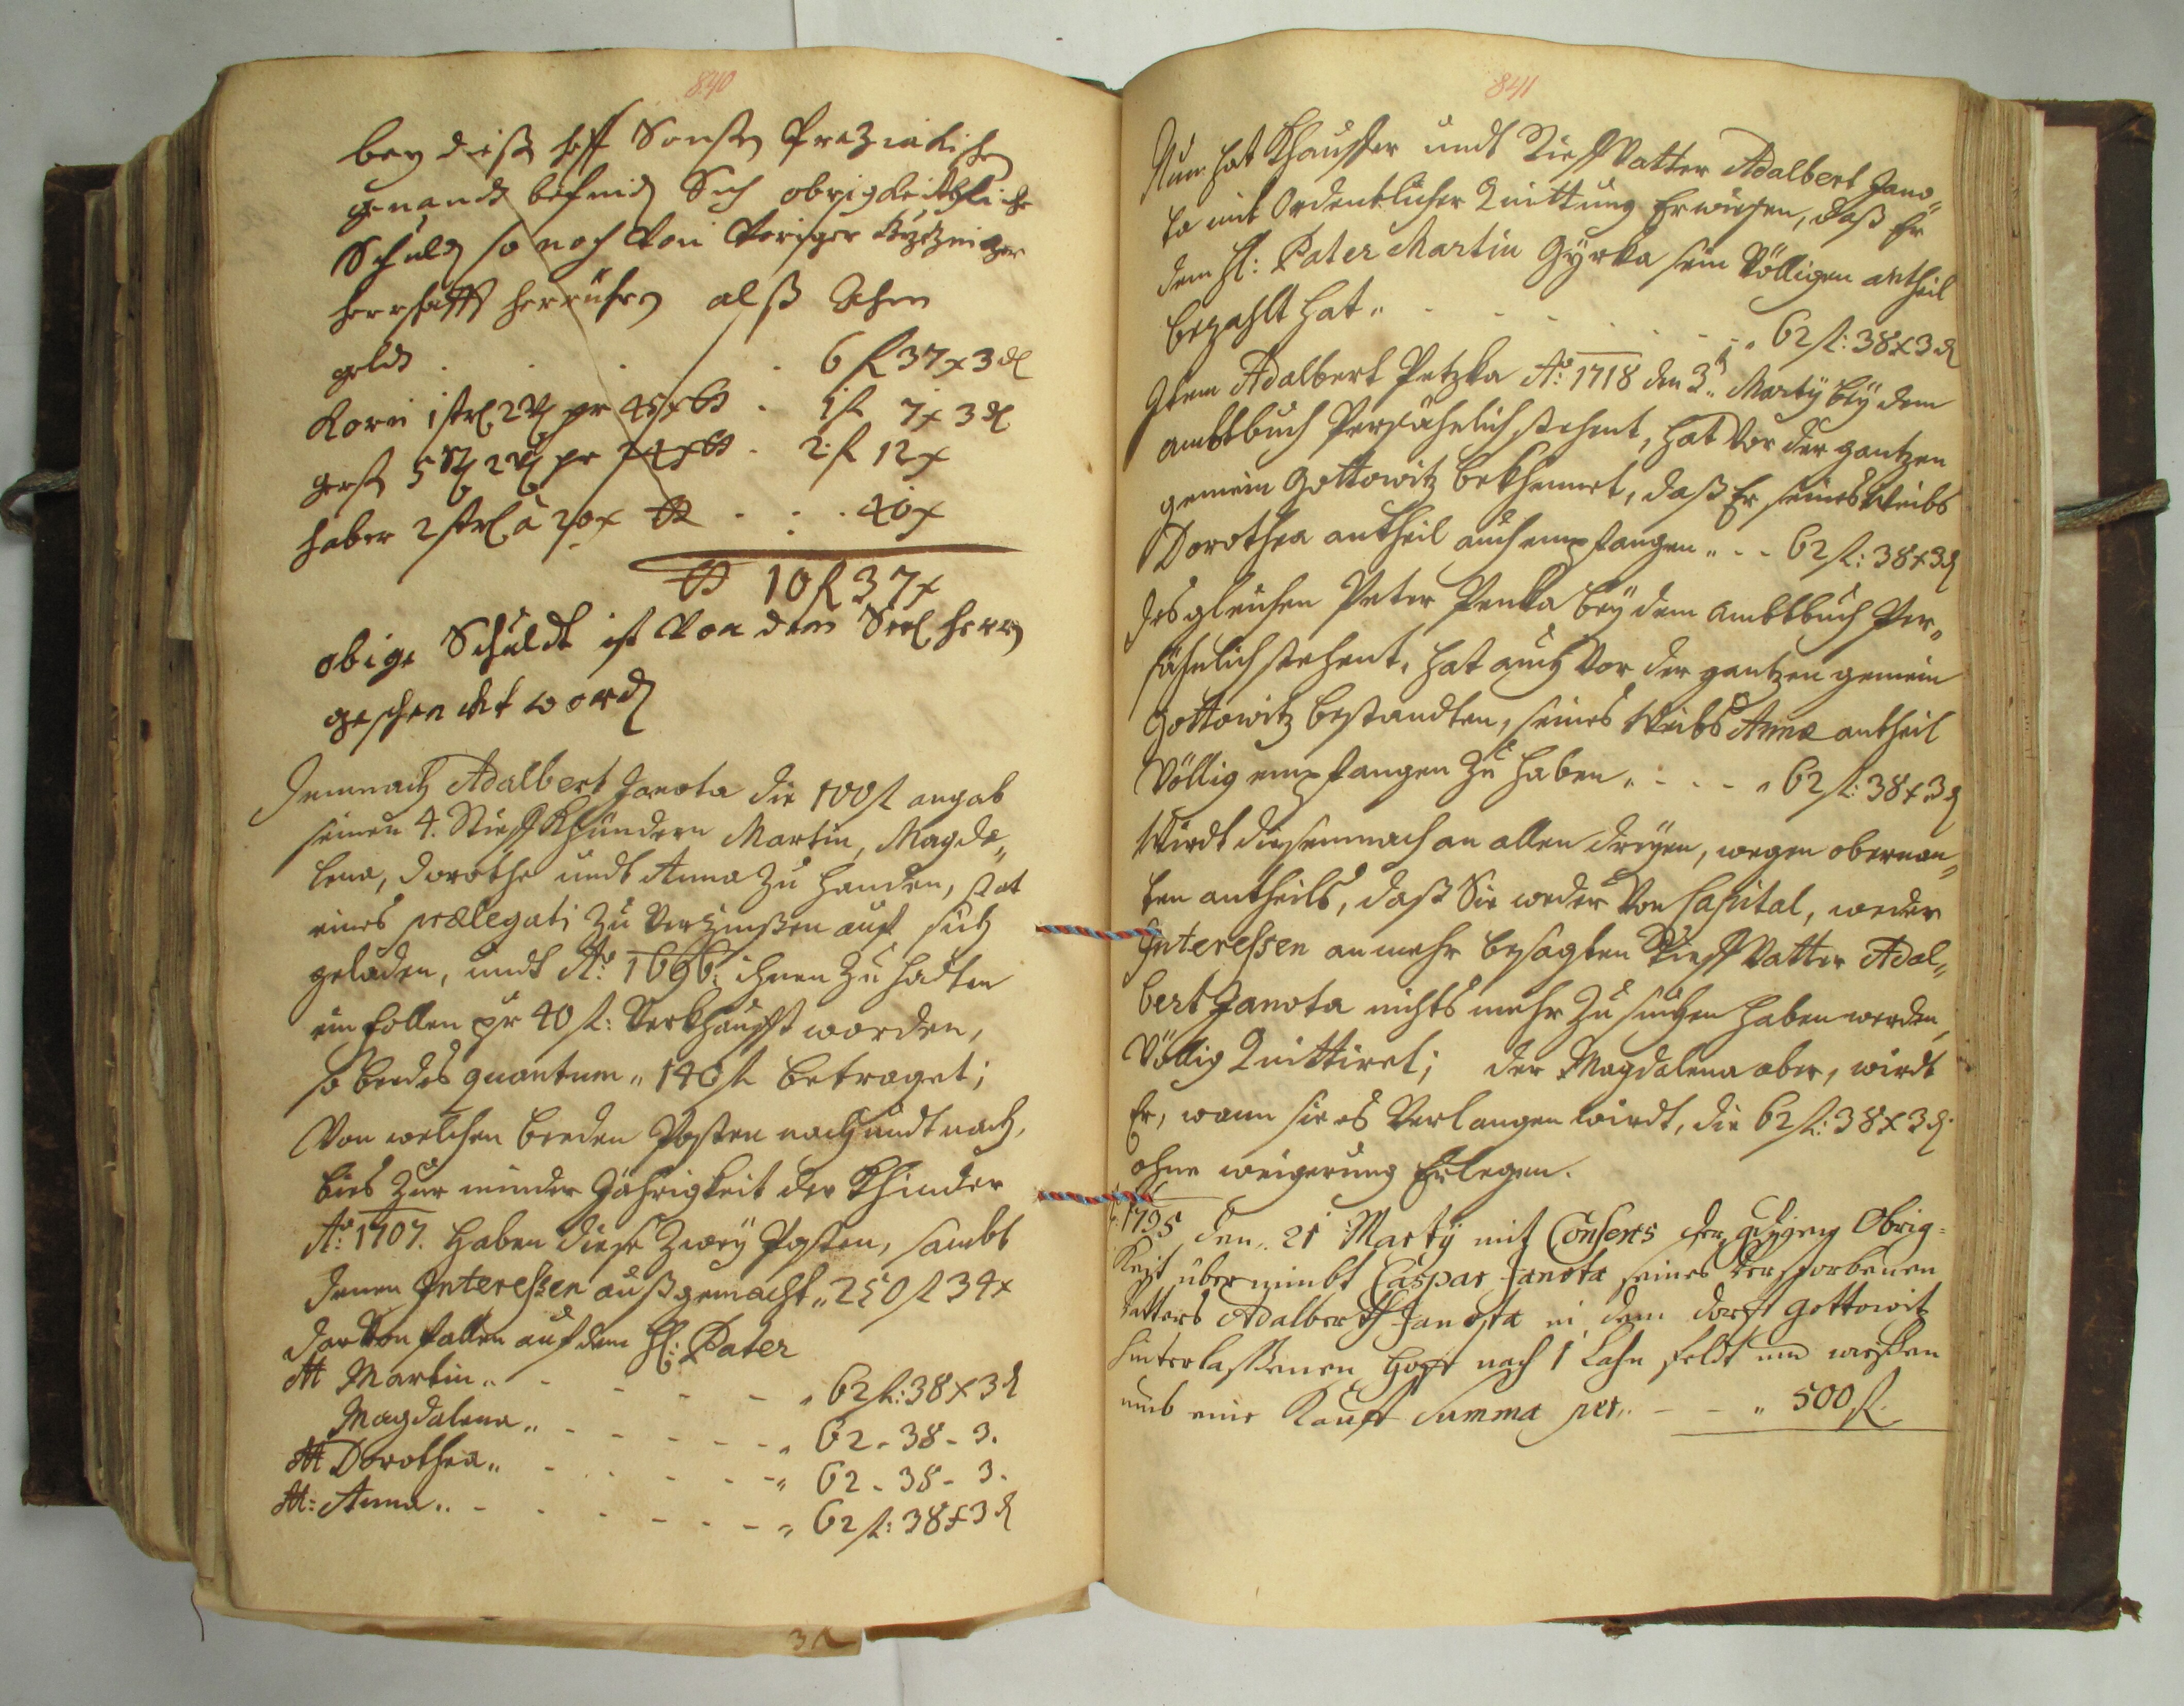 840
bey diesen hoff Sonsten Prezialischen
genandt befindt Sich obrigkeithliche
Schuldt so noch von voriger
herrschafft herrühren alß Lehen
geldt . . . . 6 fl 37 x 3 d
Korn 1 strl 2 V pr 45 x . 1 fl 7 x 3 d
gerst 5 2 pr 24 x . 2 fl 12 x
haber 2 strl à 20 x . . . 40 x
10 fl 37 x
obige Schuldt ist von dem Seel herrn
geschencket word
Demnach Adalbert Janota die 100 fl angab
seinen 4. Stieff Khindern Martin, Magda„
lena, Dorothe undt Anna zu handen, stat
eines prælegati zu Verzinßen auf sich
geladen, undt Aº: 1696: ihnen zu halten
ein follen pr 40 fl: Verkhaufft worden,
so beedes quantum „ 140 fl betraget;
Von welchen beeden Posten nach undt nach,
bies zur minder Jährigkeit der Khinder
Aº: 1707. haben diese zwey Posten, sambt
denen Interessen außgemacht „ 250 fl 34 x
darvon fallen auf dem H: Pater
Martin „ - - - - „ 62 fl: 38 x 3 d
Magdalena „ - - - - - „ 62 - 38 - 3.
Dorothea „ - - - - „ 62 - 38 - 3.
Anna „ - - - - - „ 62 fl: 38 x 3 d
841
Nun hat Khauffer undt Stieff Vatter Adalbert Jano„
ta mit Ordentlicher Quittung Erwiesen, daß Er
dem H: Pater Martin Gyrka sein Völligen antheil
bezahlt hat „ - - - - - - „ 62 fl: 38 x 3 d
Item Adalbert Petzka Aº: 1718 den 3 „ Martÿ beÿ dem
ambtbuch Persöhnlich stehent, hat vor der gantzen
gemein Gottowitz bekhennet, daß Er seines Weibs
Dorothea antheil auch empfangen „ - - 62 fl: 38 x 3 d
desgleichen Peter Penka beÿ dem ambtbuch Per„
söhnlich stehent, hat auch vor der gantzen gemein
Gottowitz bestandten, seines Weibs Annæ antheil
Völlig empfangen zu haben „ - - - „ 62 fl: 38 x 3 d
Wirdt diesemnach an allen dreyen, wegen obernan„
ten antheils, daß Sie weder Von Capital, weder
Interessen an mehr besagten Stieff Vatter Adal„
bert Janota nichts mehr zu suchen haben werden,
Völlig Quittiret; der Magdalena aber, wirdt
Er, wann sie es Verlangen wirdt, die 62 fl: 38 x 3 d.
ohne weigerung Erlegen.
1735 den „ 21 Martÿ mit Consens der gdigen Obrig=
Keit übernimbt Caspar Janota seines Verstorbenen
Vatters Adalberth Janota in dem dorff Gottowitz
hinterlassenen Hoff nach 1 Lahn feldt und wiessen
umb eine Kauff Summa per „ - - „ 500 fl.